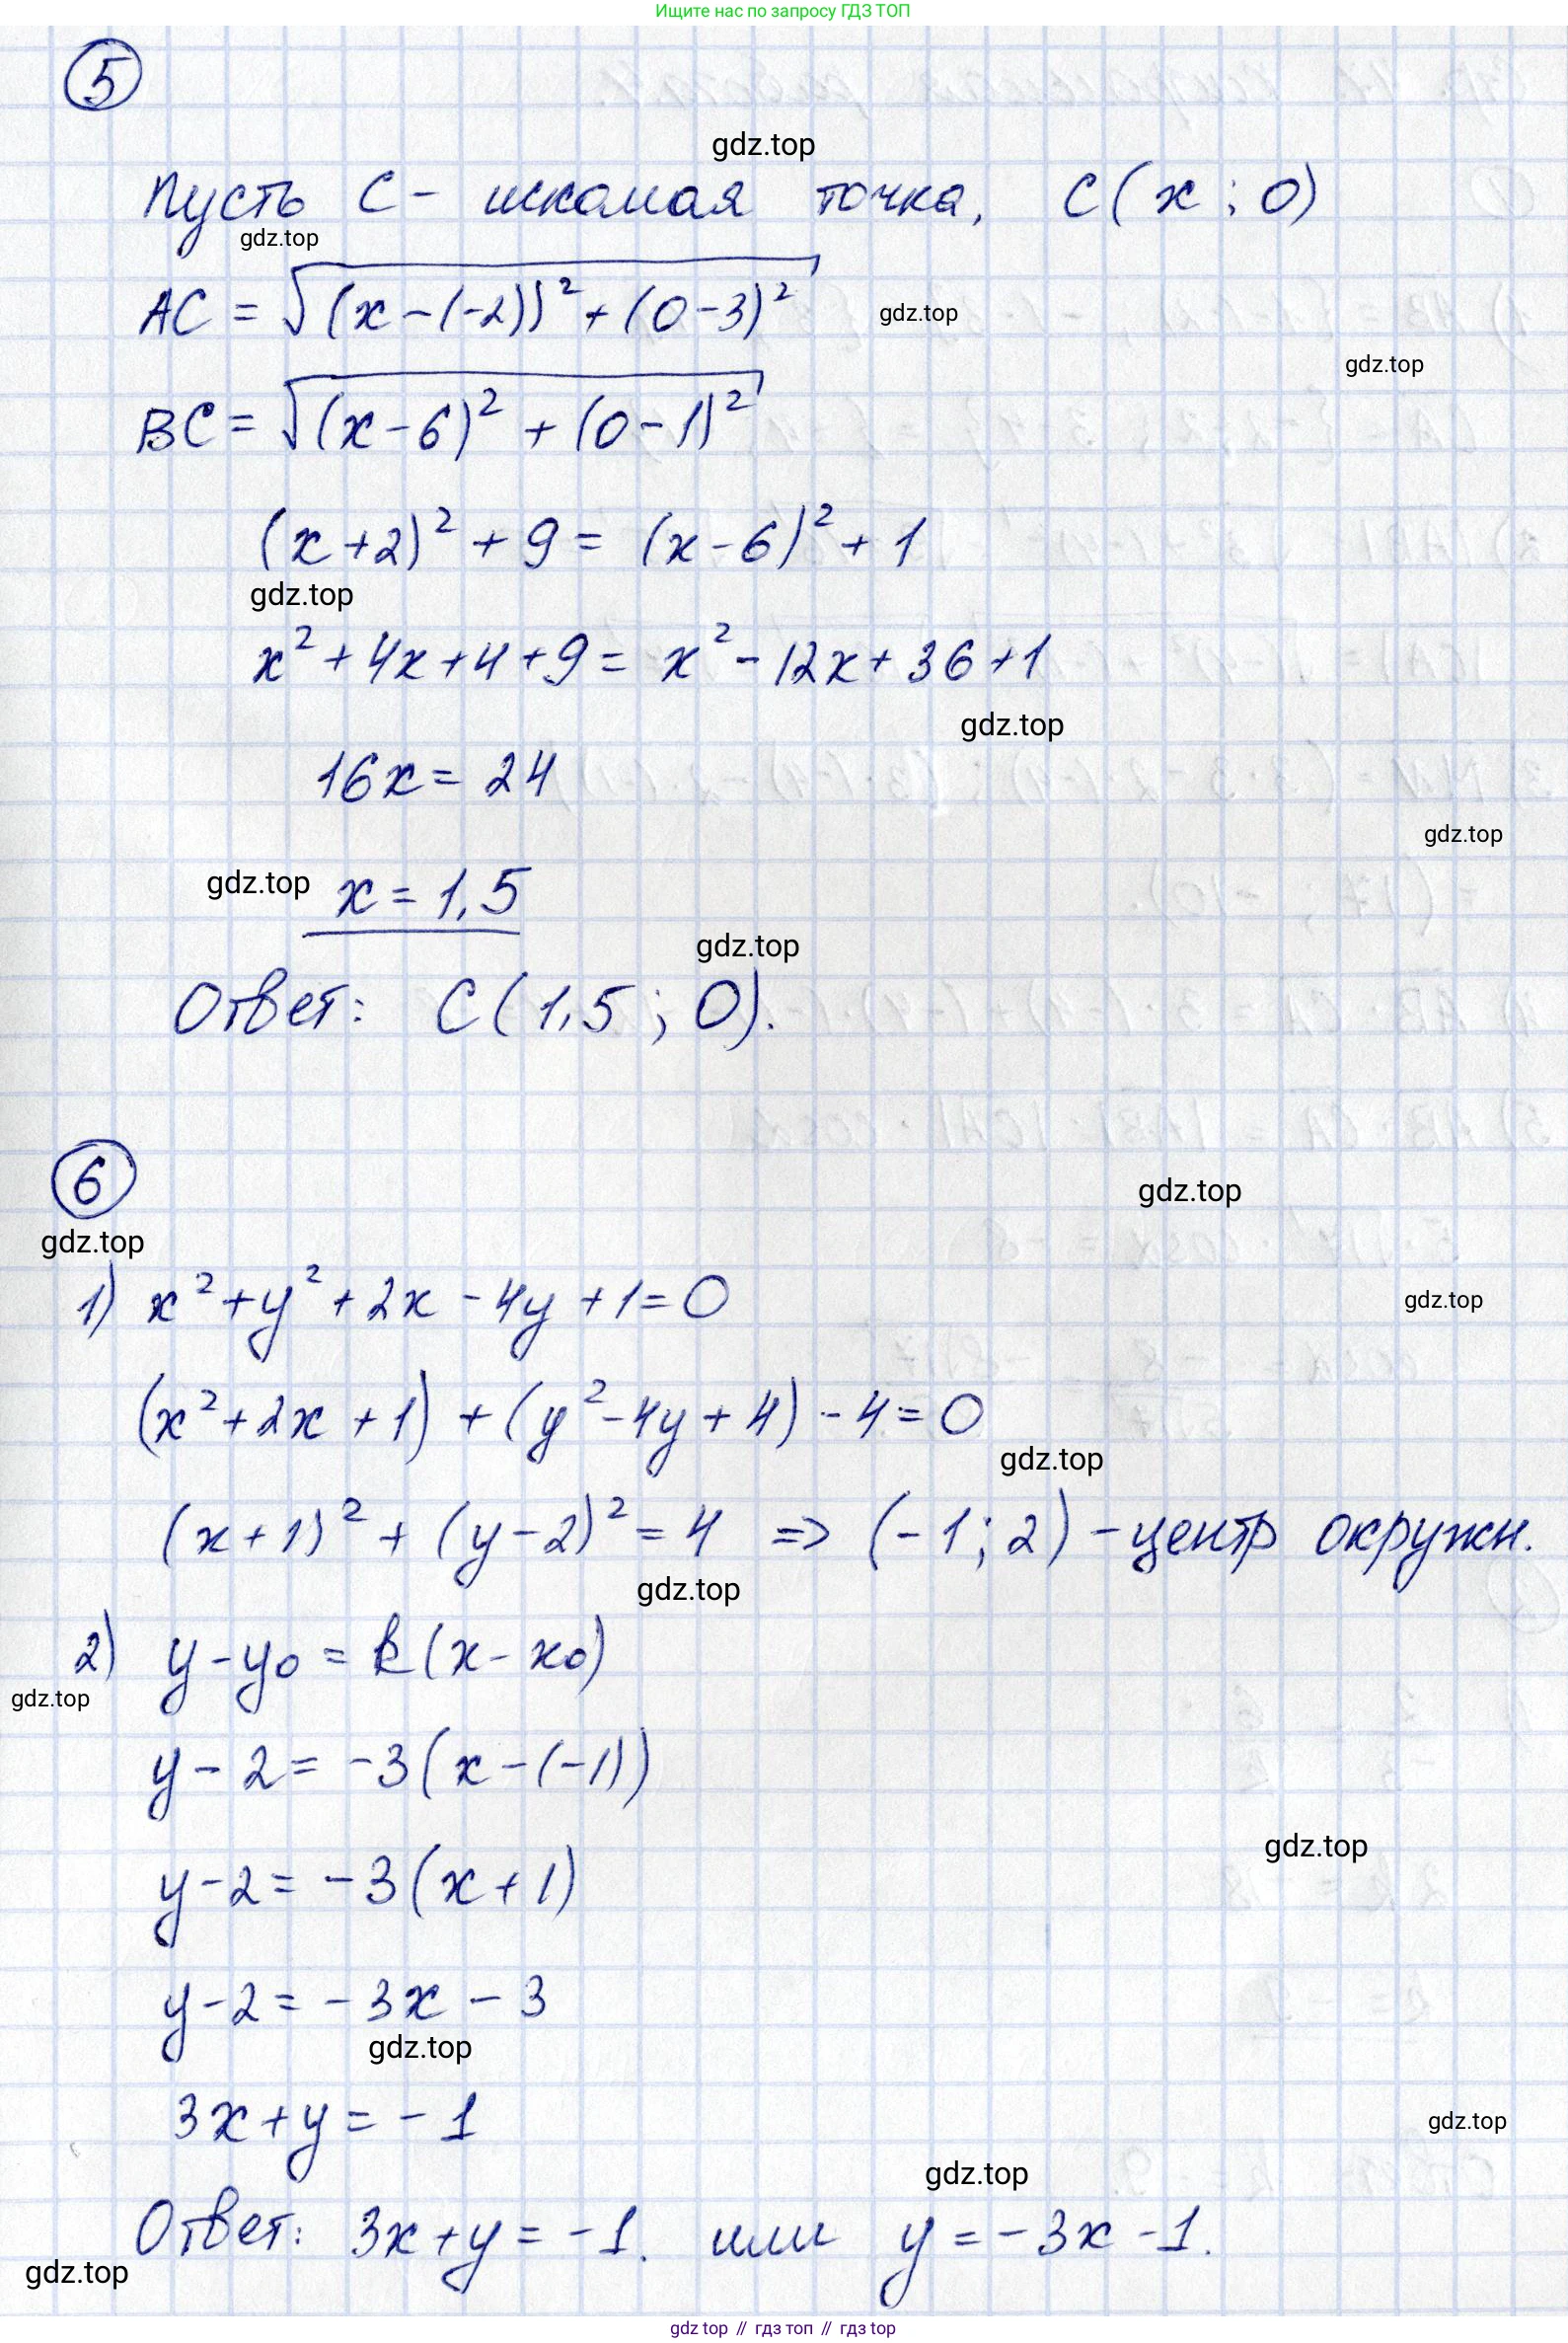 Ищите нас по запросу ГДЗ ТОП
5
gdz.top
Пусть С - искомая точка, С(x; 0)
gdz.top
AC = √((x-(-2))² + (0-3)²)
gdz.top
gdz.top
BC = √((x-6)² + (0-1)²)
(x+2)² + 9 = (x-6)² + 1
gdz.top
x² + 4x + 4 + 9 = x² - 12x + 36 + 1
gdz.top
16x = 24
gdz.top
gdz.top x = 1,5
gdz.top
Ответ: С(1,5; 0).
6
gdz.top
gdz.top
1) x² + y² + 2x - 4y + 1 = 0
gdz.top
(x² + 2x + 1) + (y² - 4y + 4) - 4 = 0
gdz.top
(x+1)² + (y-2)² = 4 => (-1; 2) - центр окружн.
gdz.top
2) y - y₀ = k(x - x₀)
gdz.top
y - 2 = -3(x - (-1))
gdz.top
y - 2 = -3(x + 1)
y - 2 = -3x - 3
gdz.top
3x + y = -1
gdz.top
gdz.top
Ответ: 3x + y = -1. или y = -3x - 1.
gdz.top
gdz top // гдз топ // гдз top